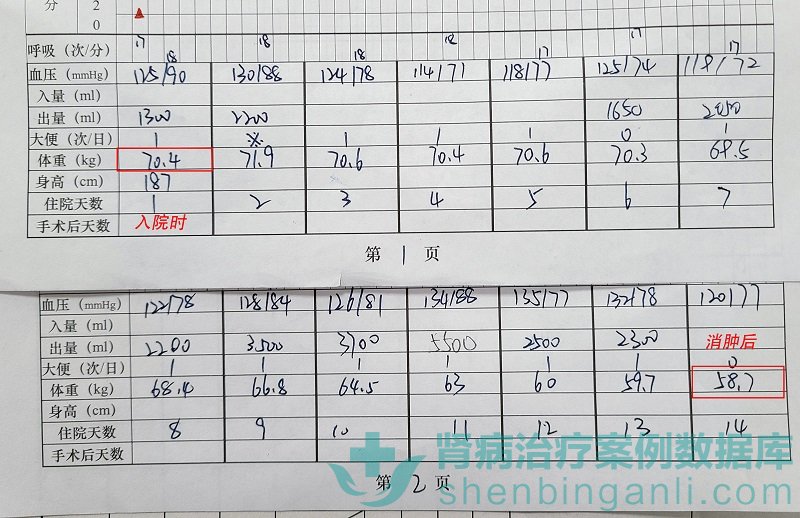 分 2
0
呼吸（次/分） 17 18 18 18 18 17 17 17
血压（mmHg） 125/90 130/88 124/78 114/71 118/77 125/74 118/72
入量（ml）
出量（ml） 1300 2200 1650 2050
大便（次/日） 1 ※ 1 1 1 0 1
体重（kg） 70.4 71.9 70.6 70.4 70.6 70.3 69.5
身高（cm） 187
住院天数 1 2 3 4 5 6 7
手术后天数 入院时
第 1 页
血压（mmHg） 122/78 128/84 126/81 134/88 135/77 132/78 120/77
入量（ml）
出量（ml） 2200 3500 3700 5500 2500 2300 消肿后
大便（次/日） 1 1 1 1 1 1 0
体重（kg） 68.4 66.8 64.5 63 60 59.7 58.7
身高（cm）
住院天数 8 9 10 11 12 13 14
手术后天数
第 2 页
肾病治疗案例数据库
shenbinganli.com